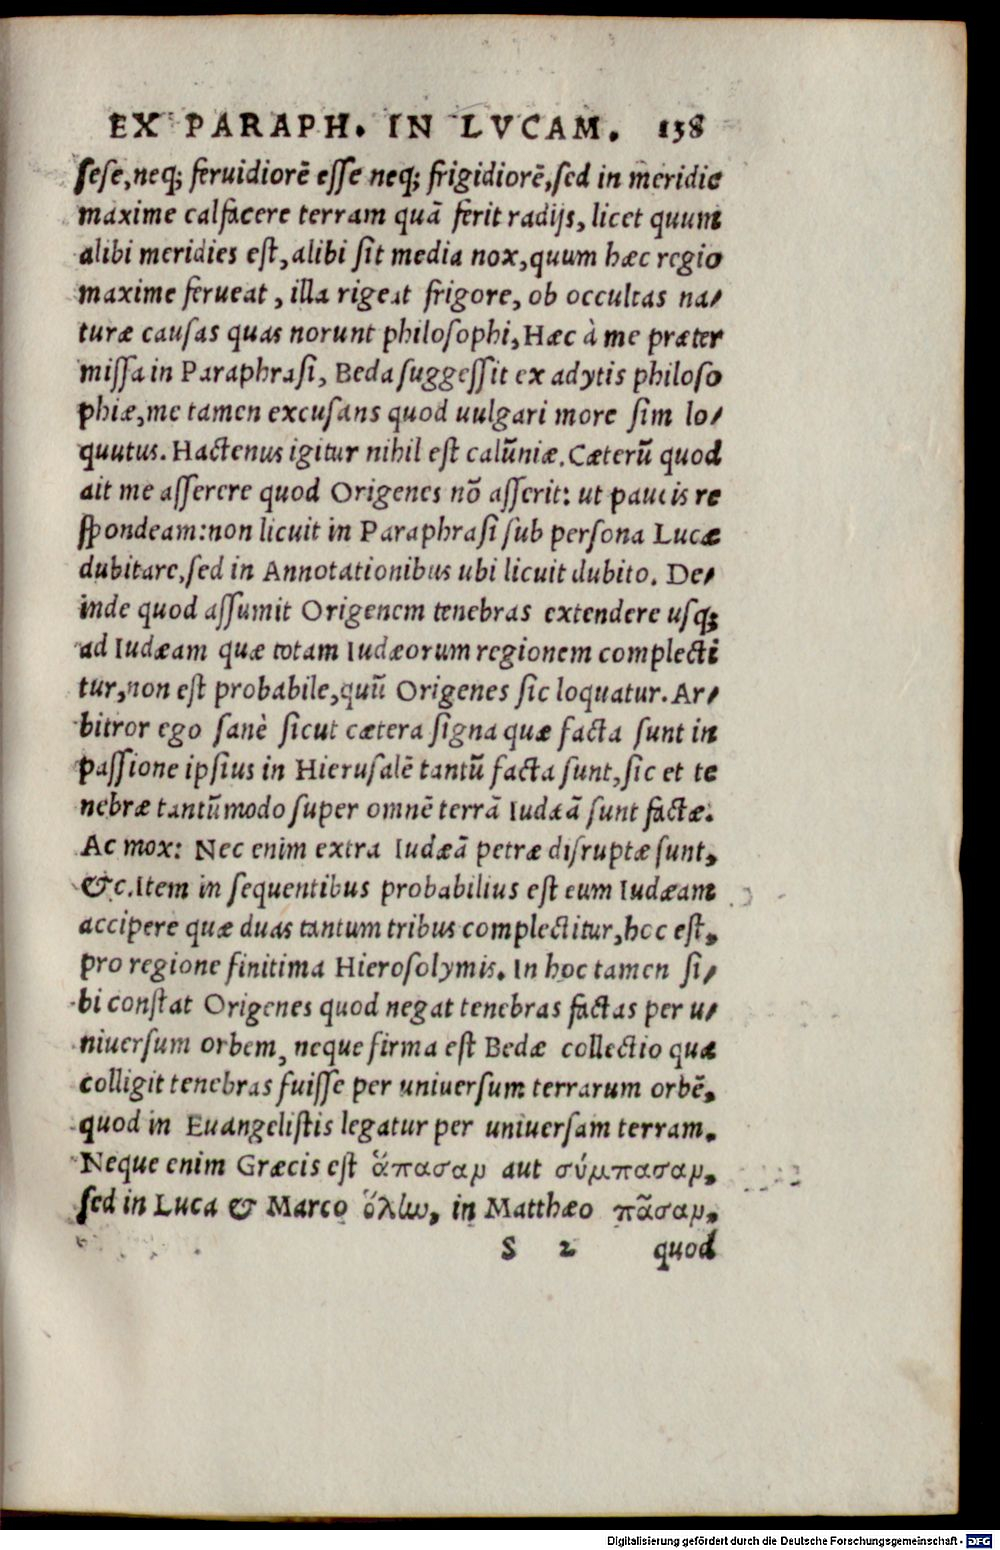 EX PARAPH. IN LVCAM. 138
sese, neq; feruidiorē esse neq; frigidiorē, sed in meridie
maxime calfacere terram quā ferit radijs, licet quum
alibi meridies est, alibi sit media nox, quum hæc regio
maxime ferueat, illa rigeat frigore, ob occultas na/
turæ causas quas norunt philosophi, Hæc à me præter
missa in Paraphrasi, Beda suggessit ex adytis philoso
phiæ, me tamen excusans quod uulgari more sim lo/
quutus. Hactenus igitur nihil est calūniæ. Cæterū quod
ait me asserere quod Origenes nō asserit: ut paucis re
spondeam: non licuit in Paraphrasi sub persona Lucæ
dubitare, sed in Annotationibus ubi licuit dubito. De/
inde quod assumit Origenem tenebras extendere usq;
ad Iudæam quæ totam Iudæorum regionem complecti
tur, non est probabile, quū Origenes sic loquatur. Ar/
bitror ego sanè sicut cætera signa quæ facta sunt in
passione ipsius in Hierusalē tantū facta sunt, sic et te
nebræ tantūmodo super omnē terrā Iudæā sunt factæ.
Ac mox: Nec enim extra Iudæā petræ disruptæ sunt,
&c. Item in sequentibus probabilius est eum Iudæam
accipere quæ duas tantum tribus complectitur, hoc est,
pro regione finitima Hierosolymis. In hoc tamen si/
bi constat Origenes quod negat tenebras factas per u/
niuersum orbem, neque firma est Bedæ collectio qua
colligit tenebras fuisse per uniuersum terrarum orbē,
quod in Euangelistis legatur per uniuersam terram.
Neque enim Græcis est ἅπασαν aut σύμπασαν,
sed in Luca & Marco ὅλἰω, in Matthæo πᾶσαν,
S 2 quod
Digitalisierung gefördert durch die Deutsche Forschungsgemeinschaft - DFG